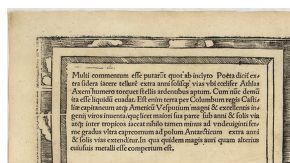 Multi commentum esse putarūt quot ab inclyto Poëta dicit extra
sidera iacere tellurē extra anni solisq; vias vbi coelifer Athlas
Axem humero torquet stellis ardentibus aptum. Cum nūc demū
ita esse liquidi euadat. Est enim terra per Columbum regis Castiliæ
capitaneum atq; Americū Vesputium magni & excellentis ingenij
viros inuenta, quę licet maiori sua parte sub anni & solis via
atq; inter tropicos iaceat nihilo tamen minus ad vndeuiginti ferme
gradus vltra capricornum ad polum Antarcticum extra anni
& solis vias extenditur. In qua quidem magis auri quam alterius
cuiusuis metalli esse compertum est.